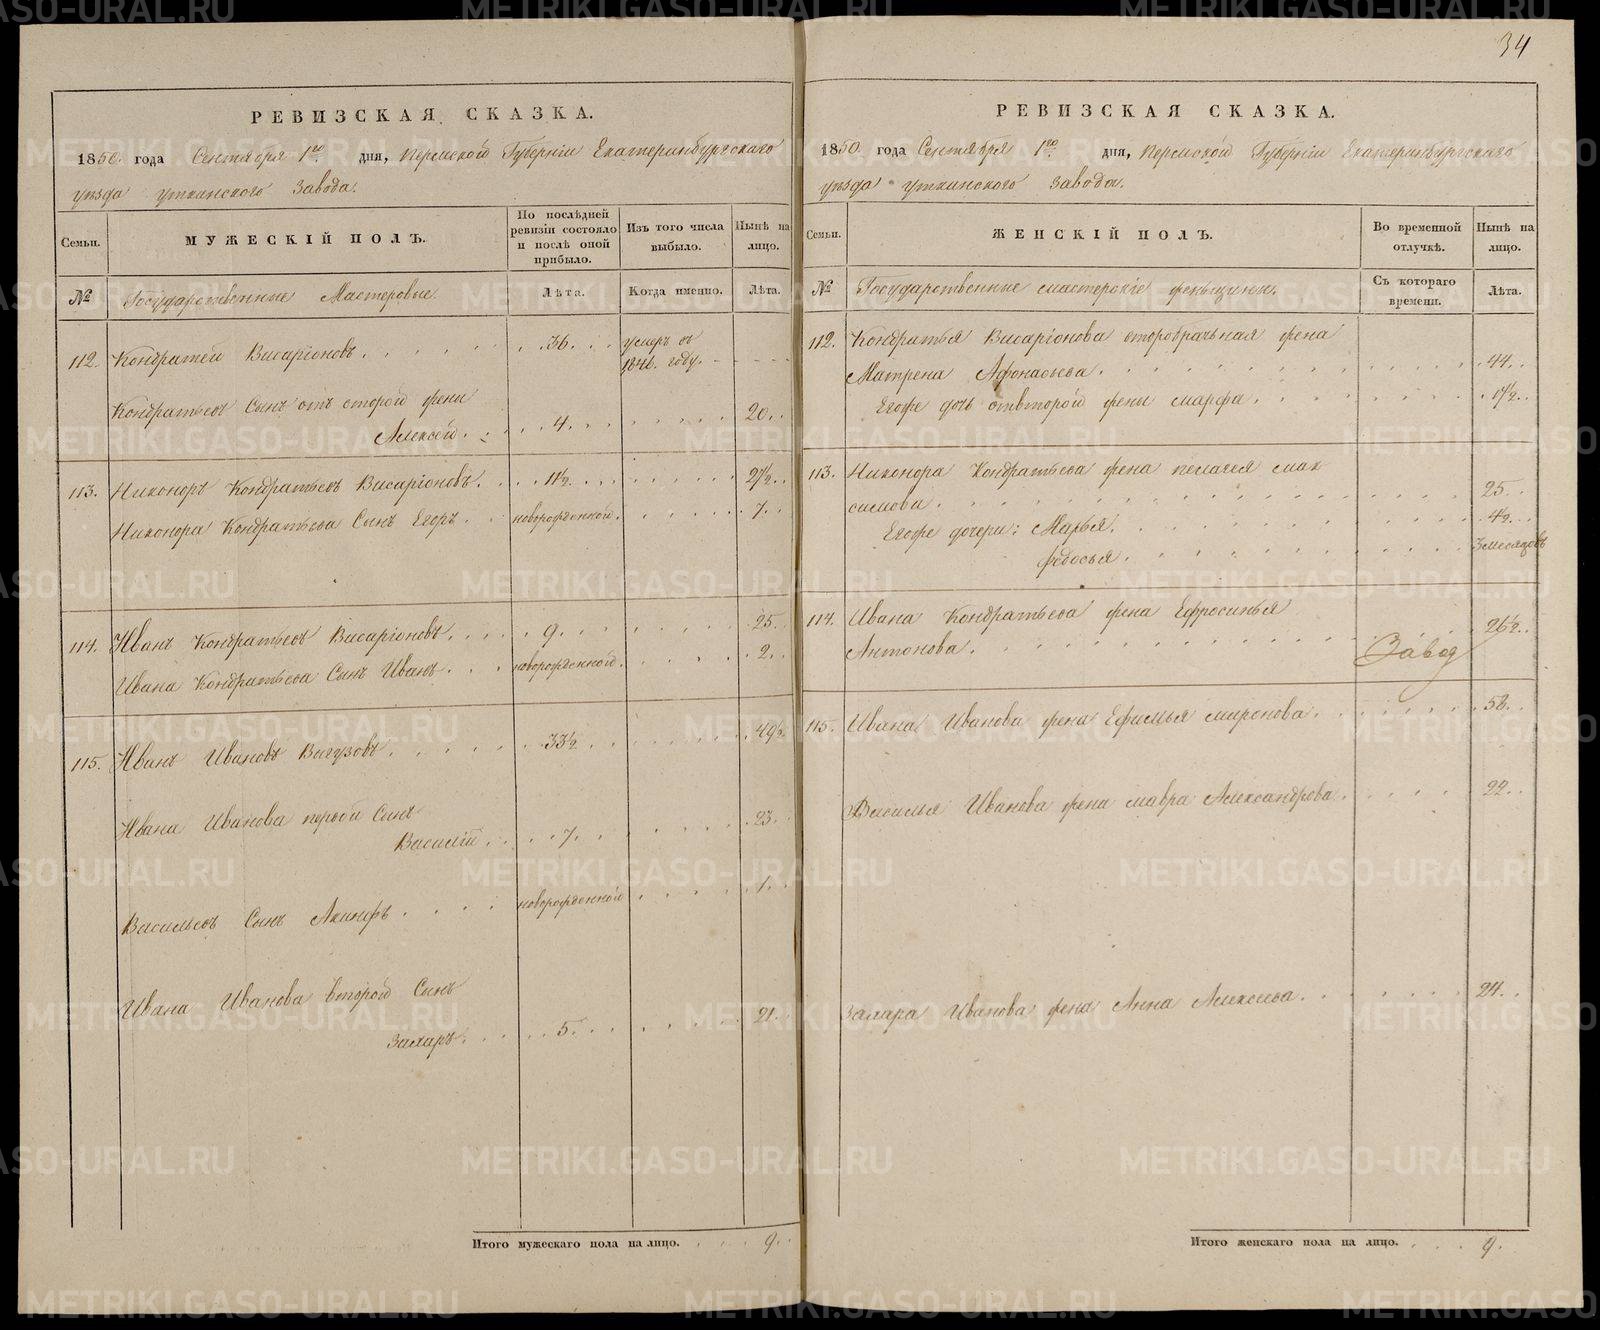 34
РЕВИЗСКАЯ СКАЗКА.
1850. года Сентября 1го. дня, Пермской Губерніи Екатеринбургскаго
уѣзда Уткинского Завода.
Семьи. МУЖЕСКІЙ ПОЛЪ. По послѣдней ревизіи состояло и послѣ оной прибыло. Изъ того числа выбыло. Нынѣ на лицо.
№ Государственные Мастеровые Лѣта. Когда именно. Лѣта.
112. Кондратей Висаріоновъ . . . 36. умеръ въ 1846. году.
Кондратьевъ Сынъ отъ второй жены
Алексей. 4. 20.
113. Никоноръ Кондратьевъ Висаріоновъ. 11½. 27½.
Никонора Кондратьева Сынъ Егоръ. новорожденной. 7.
114. Иванъ Кондратьевъ Висаріоновъ. 9. 25.
Ивана Кондратьева Сынъ Иванъ. новорожденной. 2.
115. Иванъ Ивановъ Вигузовъ. 33½. 49½.
Ивана Иванова первой Сынъ
Василій. 7. 23.
Васильевъ Сынъ Акинфъ. новорожденной 1.
Ивана Иванова второй Сынъ
Захаръ. 5. 21.
Итого мужескаго пола на лицо. 9.
РЕВИЗСКАЯ СКАЗКА.
1850 года Сентября 1го. дня, Пермской Губерніи Екатеринбургскаго
уѣзда Уткинского Завода.
Семьи. ЖЕНСКІЙ ПОЛЪ. Во временной отлучкѣ. Нынѣ на лицо.
№ Государственные мастерскіе женщины. Съ котораго времени. Лѣта.
112. Кондратья Висаріонова второбрачная жена
Матрена Афонасьева. 44.
Егоже дочь отъ второй жены Марфа. 17½.
113. Никонора Кондратьева жена Пелагея Мак
симова. 25.
Егоже дочери: Марья. 4½.
Федосья. 3 месяцовъ
114. Ивана Кондратьева жена Ефросинья
Антонова. 26½.
Завод
115. Ивана Иванова жена Ефимья Миронова. 58.
Василья Иванова жена Мавра Александрова. 22.
Захара Иванова жена Анна Алексеева. 24.
Итого женскаго пола на лицо. 9.
METRIKI.GASO-URAL.RU